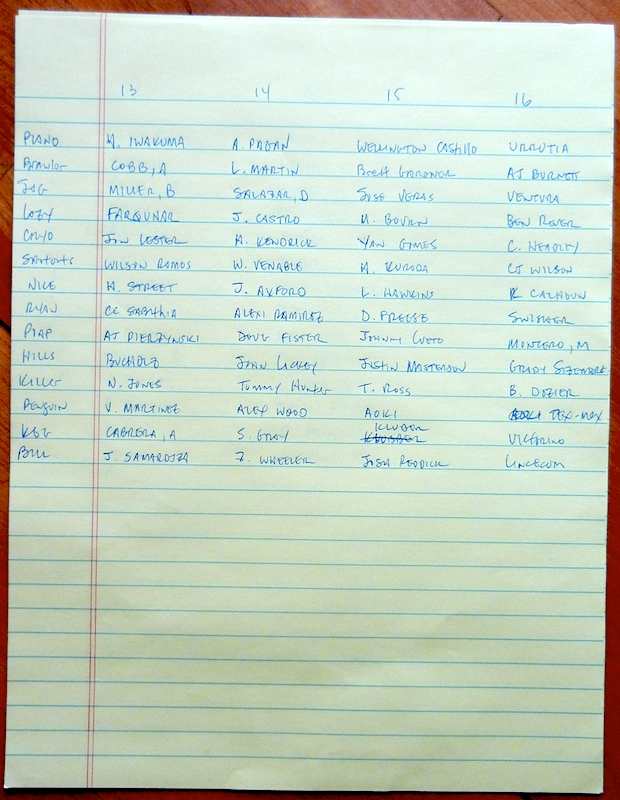 13 14 15 16
PIANO H. IWAKUMA A. PAGAN WELLINGTON CASTILLO URRUTIA
Brawler COBB, A L. MARTIN Brett GARDNER AJ BURNETT
JSG MILLER, B SALAZAR, D JOSE VERAS VENTURA
LOZY FARQUHAR J. CASTRO M. BOURN BEN REVER
JON LESTER H. KENDRICK YAN GOMES C. HEADLEY
WILSON RAMOS W. VENABLE H. KURODA CJ WILSON
NICE H. STREET J. AXFORD L. HAWKINS K. CALHOUN
RYAN CC SABATHIA ALEXI RAMIREZ D. FREESE SWISHER
PIAP AJ PIERZYNSKI DOUG FISTER JOHNNY CUETO MONTERO, M
HILLS BUCHOLZ JOHN LACKEY JUSTIN MASTERSON GRADY SIZEMORE
KILLER N. JONES TOMMY HUNTER T. ROSS B. DOZIER
PENGUIN V. MARTINEZ ALEX WOOD AOKI TEX-MEX
KGB CABRERA, A S. GRAY KLUBER VICTORINO
BILL J. SAMARDZJA Z. WHEELER JOSH REDDICK LINCECUM